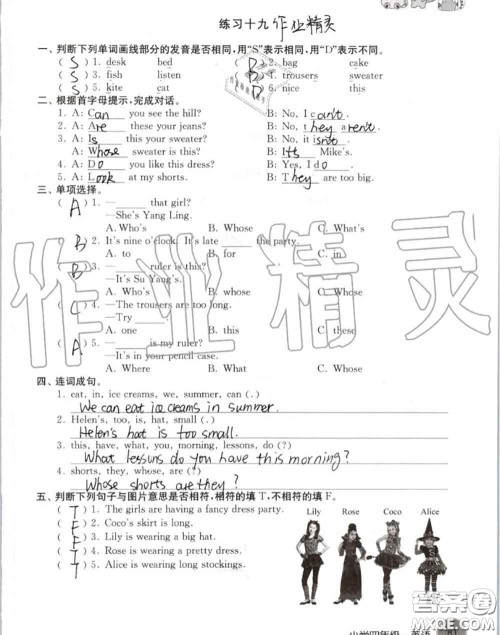 练习十九 作业精灵
一、判断下列单词画线部分的发音是否相同,用“S”表示相同,用“D”表示不同。
( S ) 1. desk bed ( D ) 2. bag cake
( S ) 3. fish listen ( ) 4. trousers sweater
( S ) 5. kite cat ( D ) 6. nice this
二、根据首字母提示,完成对话。
1. A: Can you see the hill? B: No, I can't.
2. A: Are these your jeans? B: No, they aren't.
3. A: Is this your sweater? B: No, it isn't.
A: Whose sweater is this? B: It's Mike's.
4. A: Do you like this dress? B: Yes, I do.
5. A: Look at my shorts. B: They are too big.
三、单项选择。
( A ) 1. —______ that girl?
—She's Yang Ling.
A. Who's B. Whose C. What's
( B ) 2. It's nine o'clock. It's late ______ the party.
A. to B. for C. in
( B ) 3. —______ ruler is this?
—It's Su Yang's.
A. Who's B. whose C. Whose
( C ) 4. —The trousers are too long.
—Try ______.
A. one B. this C. these
( A ) 5. —______ is my ruler?
—It's in your pencil case.
A. Where B. What C. Whose
四、连词成句。
1. eat, in, ice creams, we, summer, can (.)
We can eat ice creams in summer.
2. Helen's, too, is, hat, small (.)
Helen's hat is too small.
3. this, have, what, you, morning, lessons, do (?)
What lessons do you have this morning?
4. shorts, they, whose, are (?)
Whose shorts are they?
五、判断下列句子与图片意思是否相符,相符的填 T,不相符的填 F。
( T ) 1. The girls are having a fancy dress party. Lily Rose Coco Alice
( F ) 2. Coco's skirt is long.
( F ) 3. Lily is wearing a big hat.
( T ) 4. Rose is wearing a pretty dress.
( T ) 5. Alice is wearing long stockings.
作业精灵
答案圈
MXQE.COM